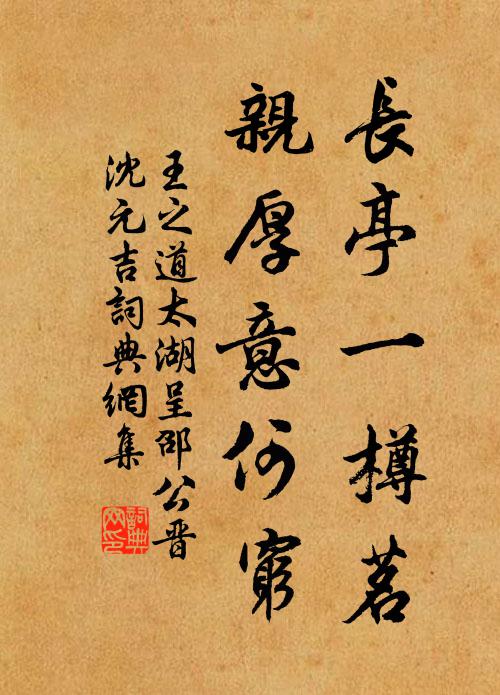 長亭一樽茗
親厚意何窮
王之道太湖呈邵公晋
沈元吉詞典網集
詞典網印